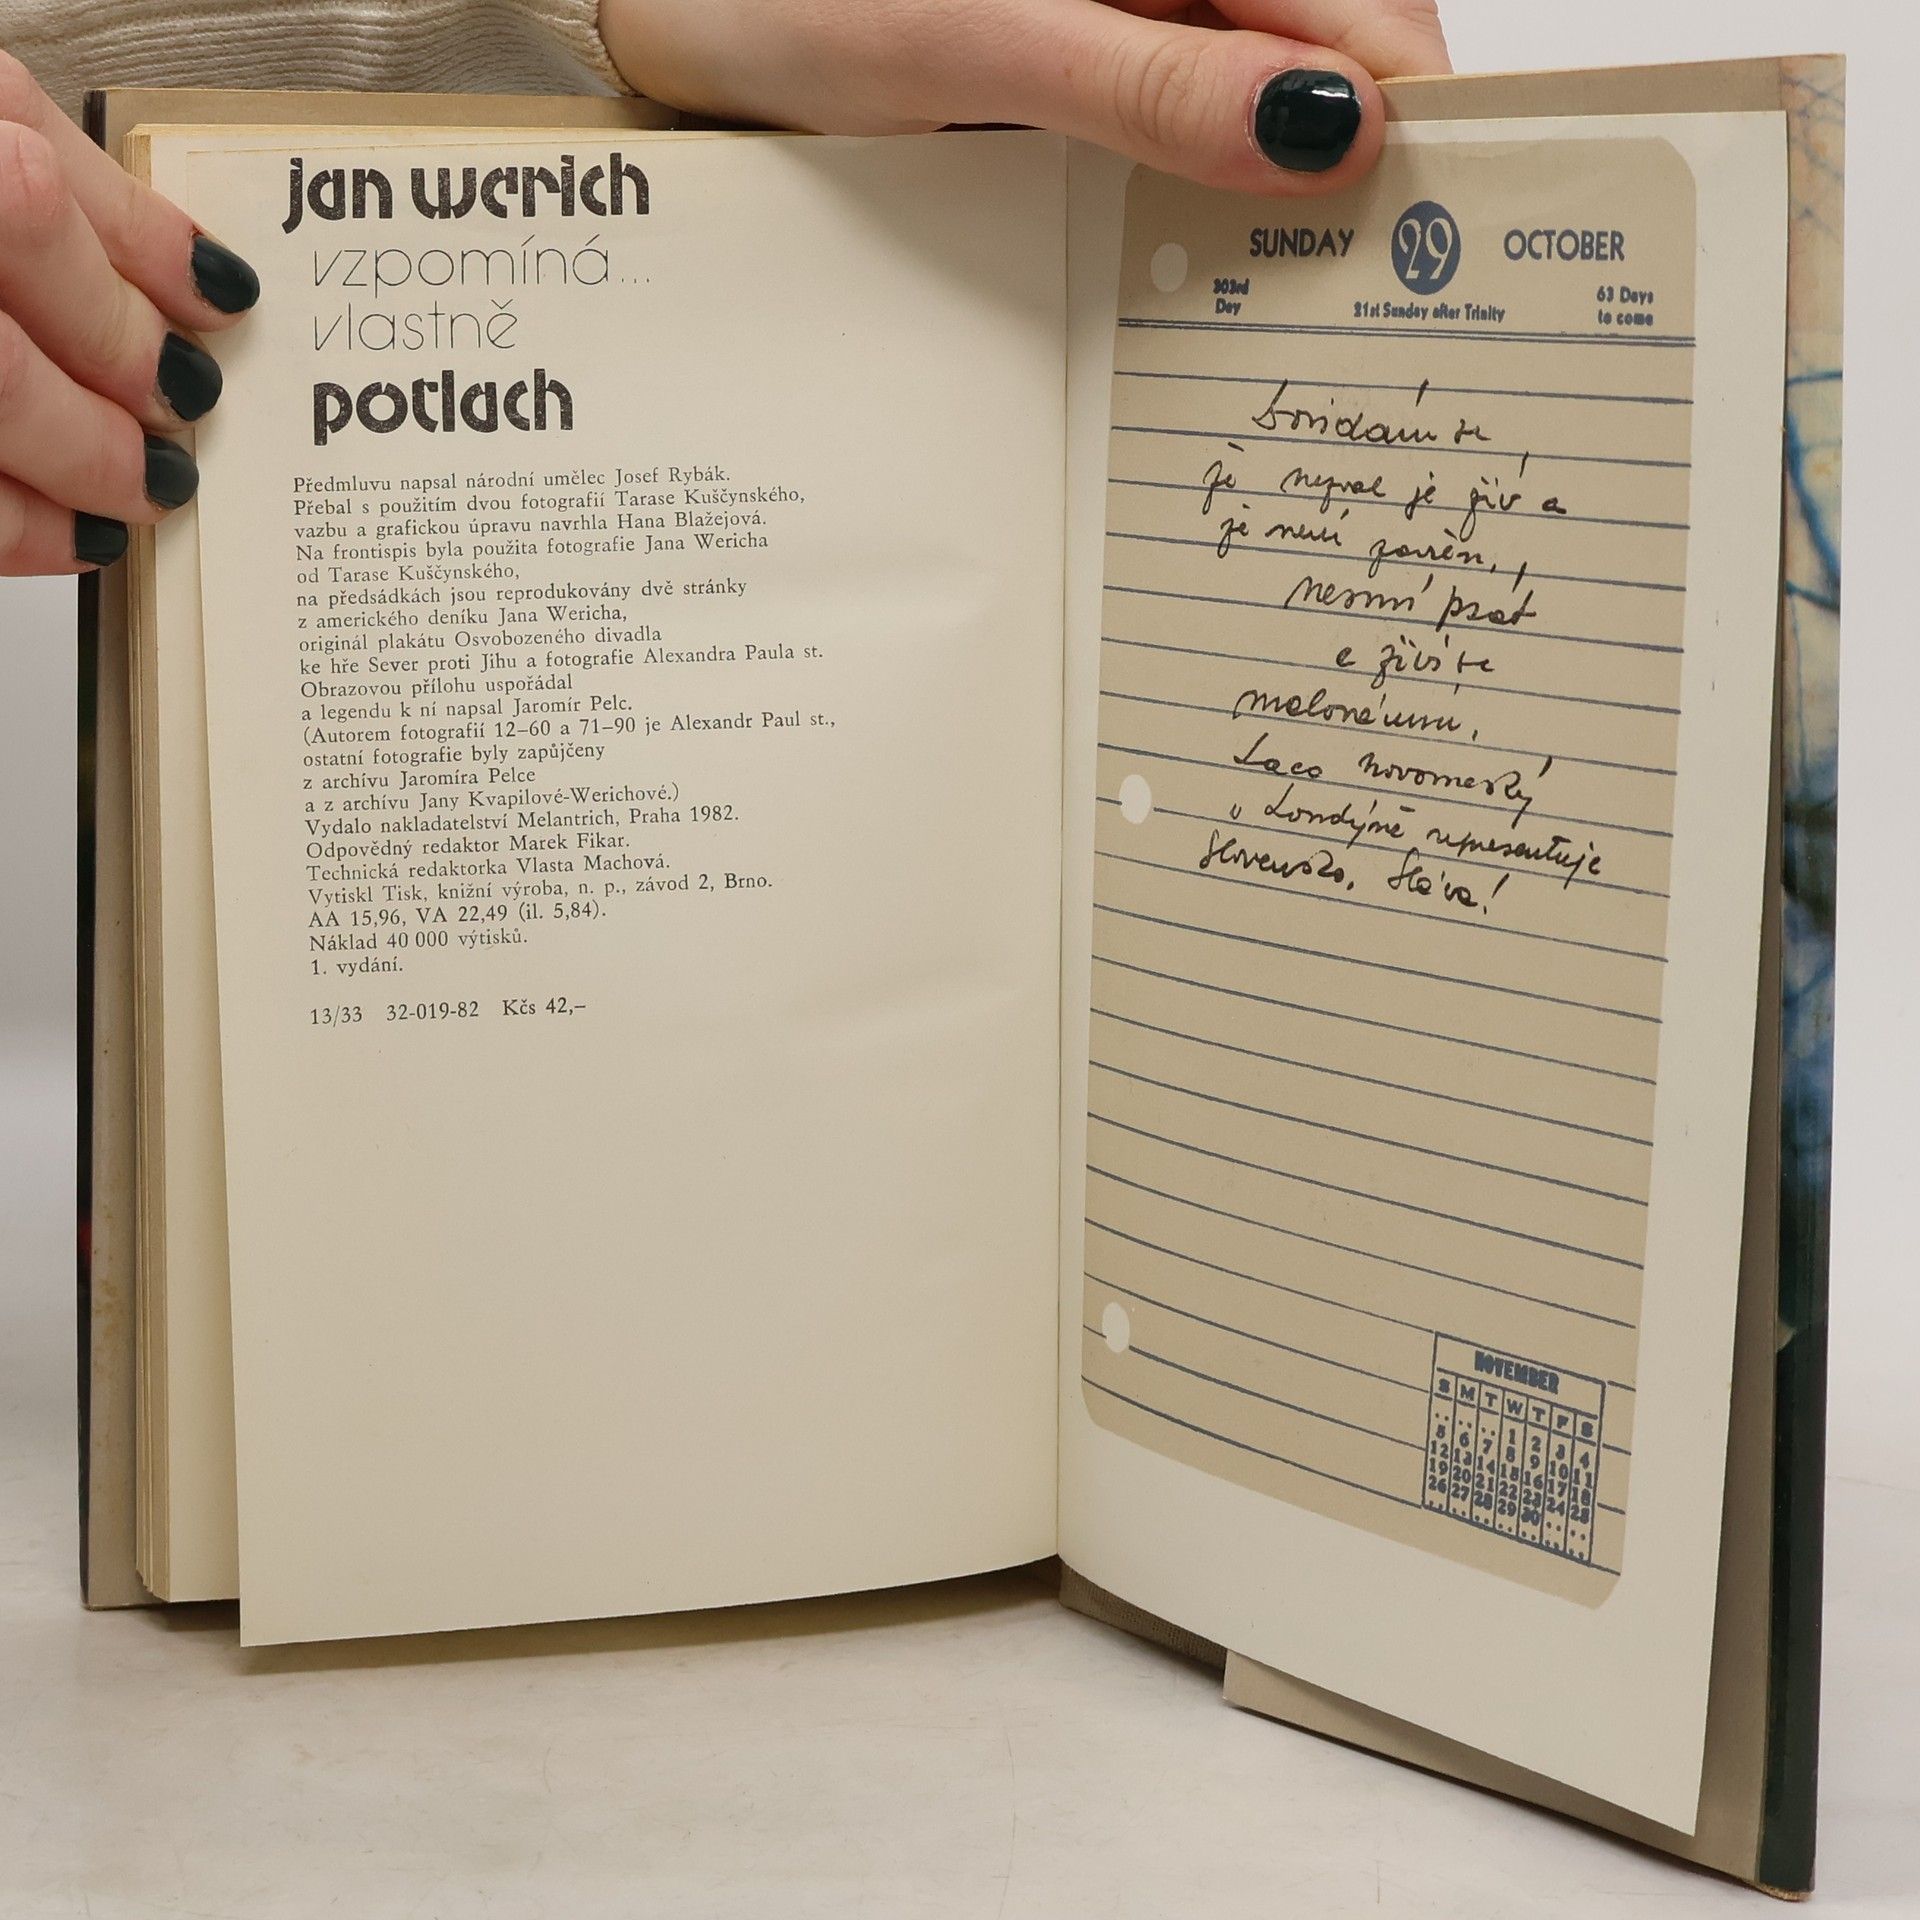 jan werich
vzpomíná...
vlastně
potlach
Předmluvu napsal národní umělec Josef Rybák.
Přebal s použitím dvou fotografií Tarase Kuščynského,
vazbu a grafickou úpravu navrhla Hana Blažejová.
Na frontispis byla použita fotografie Jana Wericha
od Tarase Kuščynského,
na předsádkách jsou reprodukovány dvě stránky
z amerického deníku Jana Wericha,
originál plakátu Osvobozeného divadla
ke hře Sever proti Jihu a fotografie Alexandra Paula st.
Obrazovou přílohu uspořádal
a legendu k ní napsal Jaromír Pelc.
(Autorem fotografií 12–60 a 71–90 je Alexandr Paul st.,
ostatní fotografie byly zapůjčeny
z archívu Jaromíra Pelce
a z archívu Jany Kvapilové-Werichové.)
Vydalo nakladatelství Melantrich, Praha 1982.
Odpovědný redaktor Marek Fikar.
Technická redaktorka Vlasta Machová.
Vytiskl Tisk, knižní výroba, n. p., závod 2, Brno.
AA 15,96, VA 22,49 (il. 5,84).
Náklad 40 000 výtisků.
1. vydání.
13/33 32-019-82 Kčs 42,–
SUNDAY 29 OCTOBER
303rd Day 21st Sunday after Trinity 63 Days to come
se
že nezval je živ a
že není zavřen,
nesmí psát
a živí se
malováním.
Laco Novomeský
v Londýně representuje
Slovensko. Sláva!
NOVEMBER
S M T W T F S
.. .. .. 1 2 3 4
5 6 7 8 9 10 11
12 13 14 15 16 17 18
19 20 21 22 23 24 25
26 27 28 29 30 .. ..
.. .. .. .. .. .. ..